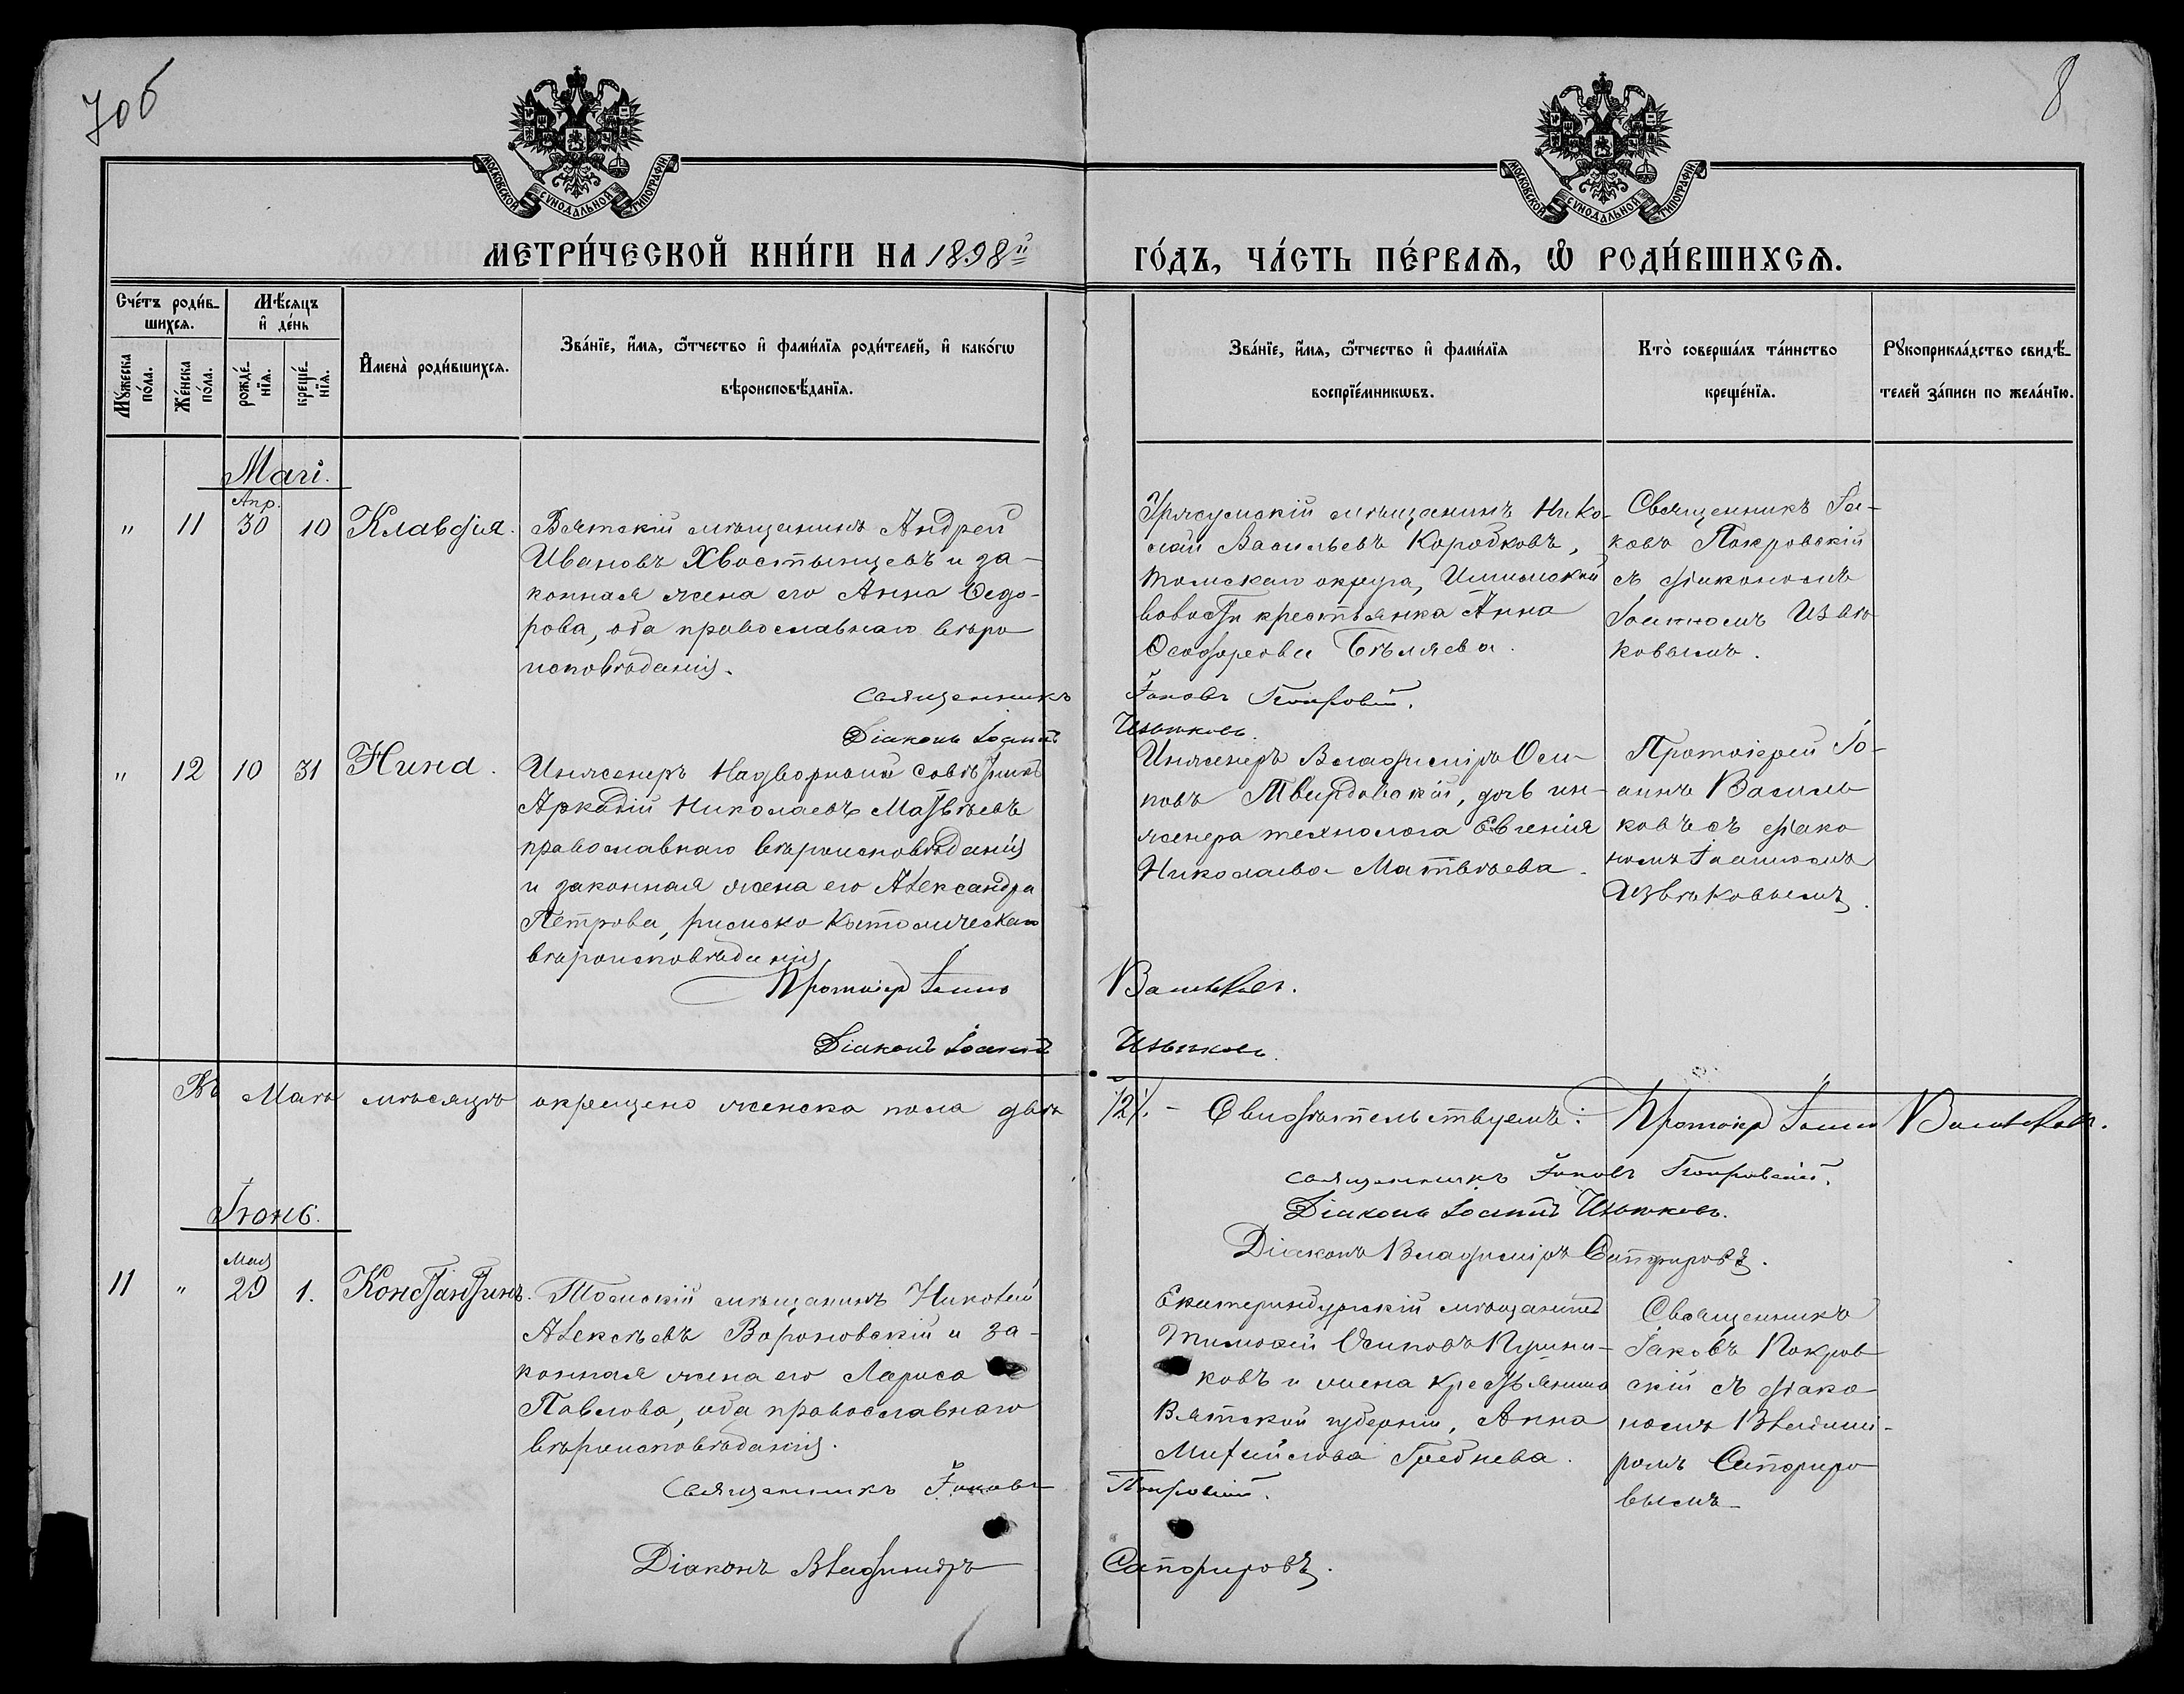 7 об
8
МОСКОВСКОЙ СѴНОДАЛЬНОЙ ТИПОГРАФІИ
МОСКОВСКОЙ СѴНОДАЛЬНОЙ ТИПОГРАФІИ
МЕТРИ́ЧЕСКОЙ КНИ́ГИ НА 1898й
ГО́ДЪ, ЧА́СТЬ ПЕ́РВАѦ, Ѡ҆ РОДИ́ВШИХСѦ.
Сче́тъ роди́в-
шихсѧ.
Мѣ́сѧцъ
и҆ де́нь
Мꙋ́жеска
по́ла.
Же́нска
по́ла.
рожде́-
нїѧ.
креще́-
нїѧ.
И҆мена̀ роди́вшихсѧ.
Зва́нїе, и҆́мѧ, ѻ҆́тчество и҆ фами́лїѧ роди́телей, и҆ како́гѡ
вѣроисповѣ́данїѧ.
Зва́нїе, и҆́мѧ, ѻ҆́тчество и҆ фами́лїѧ
воспрїе́мникѡвъ.
Кто̀ соверша́лъ та́инство
креще́нїѧ.
Рꙋкоприкла́дство свидѣ́-
телей за́писи по жела́нїю.
Маій.
Апр.
" 11 30 10 Клавдія.
Вятскій мѣщанинъ Андрей
Ивановъ Хвостынцевъ и за-
конная жена его Анна Ѳедо-
рова, оба православнаго вѣро
исповѣданія.
Священникъ
Діаконъ Іоаннъ
мѣщанинъ Нико-
лай Васильевъ Коробковъ,
Томскаго округа, Ишимской
волости крестьянка Анна
Ѳеодорова Бѣляева.
Іаковъ Покровскій.
Извѣковъ.
Священникъ Іа-
ковъ Покровскій
съ діакономъ
Іоанномъ Извѣ-
ковымъ.
" 12 10 31 Нина.
Инженеръ Надворный Совѣтникъ
Аркадій Николаевъ Матвѣевъ
православнаго вѣроисповѣданія
и законная жена его Александра
Петрова, римско католическаго
вѣроисповѣданія
Протоіер Іоаннъ
Діаконъ Іоаннъ
Инженеръ Владиміръ Оси-
повъ Твердовскій, дочь ин-
женера технолога Евгенія
Николаева Матвѣева.
Васильковъ.
Извѣковъ.
Протоіерей Іо-
аннъ Василь
ковъ съ діако
номъ Іоанномъ
Извѣковымъ.
Въ Маѣ мѣсяцѣ окрещено женска пола двѣ /2/. - Свидѣтельствуемъ: Протоіер Іоаннъ Васильковъ.
Священникъ Іаковъ Покровскій.
Діаконъ Іоаннъ Извѣковъ.
Діаконъ Владиміръ Сапфировъ.
Іюнь.
Мая
11 " 29 1. Константинъ.
Томскій мѣщанинъ Николай
Алексѣевъ Вороновскій и за-
конная жена его Лариса
Павлова, оба православнаго
вѣроисповѣданія.
Священникъ Іаковъ
Діаконъ Владиміръ
Екатеринбургскій мѣщанинъ
Тимоѳей Осиповъ Пушни-
ковъ и жена крестьянина
Вятской губерніи, Анна
Михайлова Гребнева.
Покровскій.
Сапфировъ.
Священникъ
Іаковъ Покров
скій съ діако
номъ Владимі-
ромъ Сапфиро
вымъ